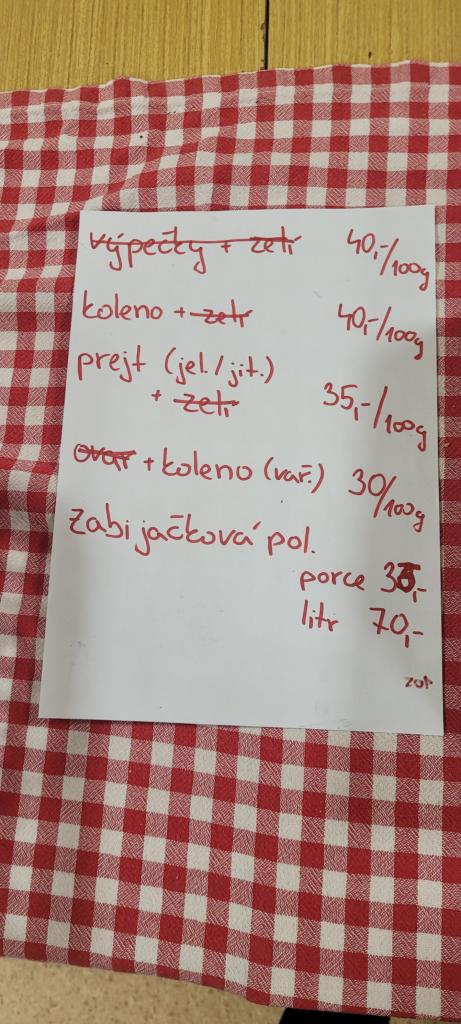 výpečky + zelí 40,-/100g
koleno + zelí 40,-/100g
prejt (jel./jit.)
+ zelí 35,-/100g
ovar + koleno (vař.) 30/100g
Zabijačková pol.
porce 35,-
litr 70,-